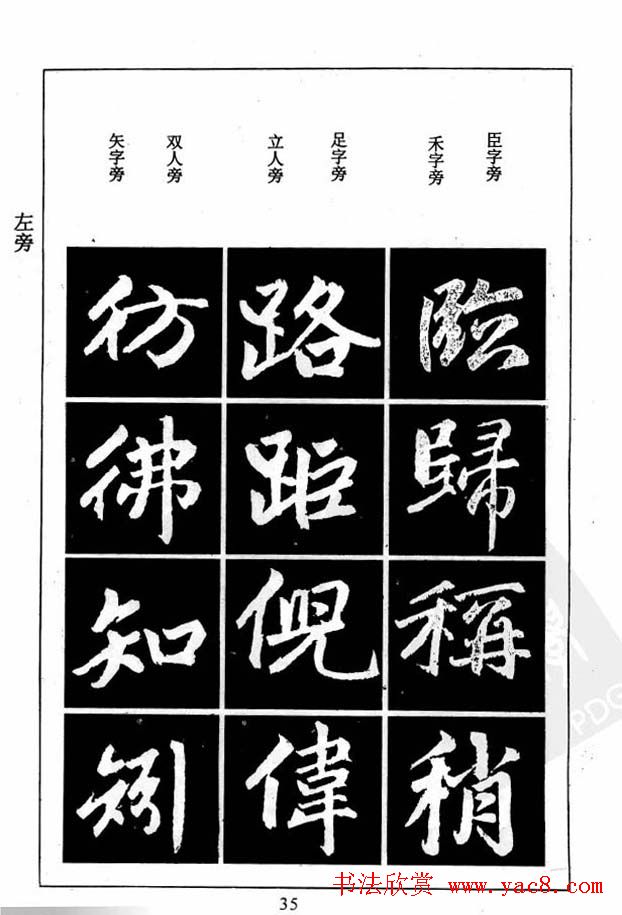 左旁
臣字旁
禾字旁
足字旁
立人旁
双人旁
矢字旁
臨
歸
稱
稍
路
距
倪
偉
彷
彿
知
矧
35
书法欣赏 www.yac8.com
PDG